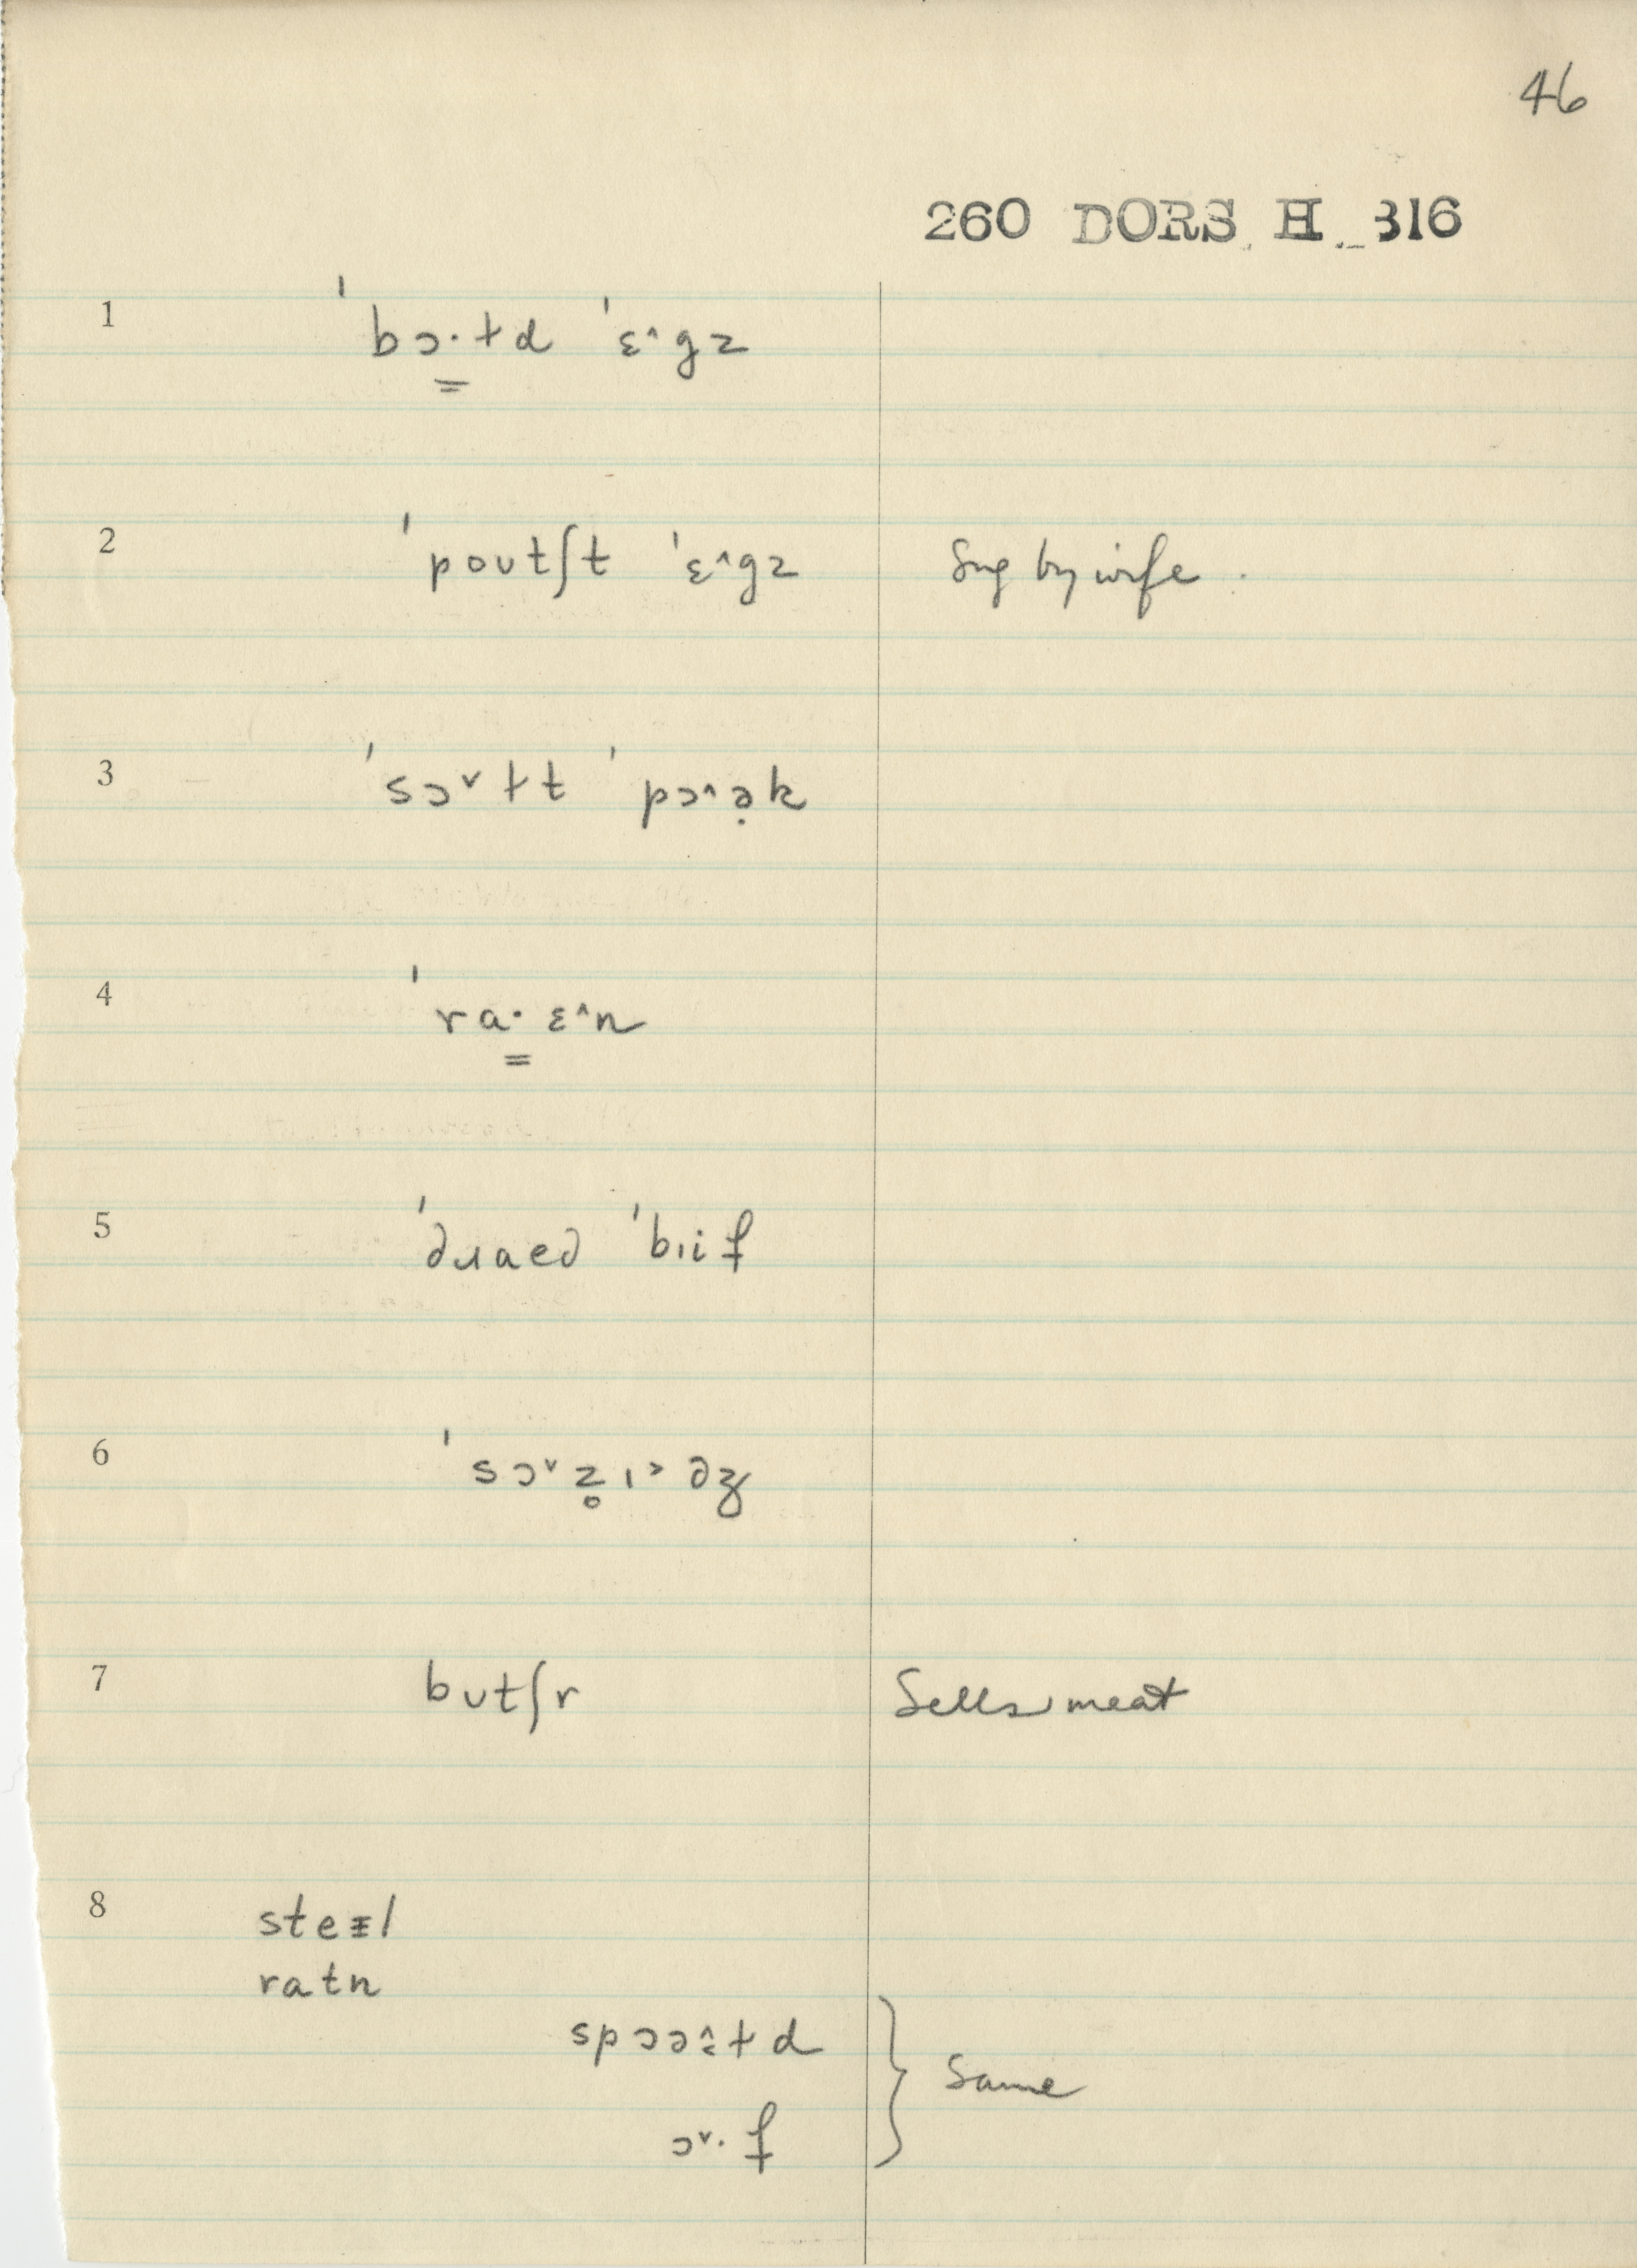 46
260 DORS H 316
1 ˈbɔ·ɫd ˈɛ˄gz
2 ˈpoʊtʃt ˈɛ˄gz Sug by wife.
3 ˈsɔ˅ɫt ˈpɔ˄ə̣k
4 ˈra·ɛ˄n
5 ˈdɹaed ˈbɪif
6 ˈsɔ˅z̥ɪ˃dʒ
7 bʊtʃr Sells meat
8
ratn
Same